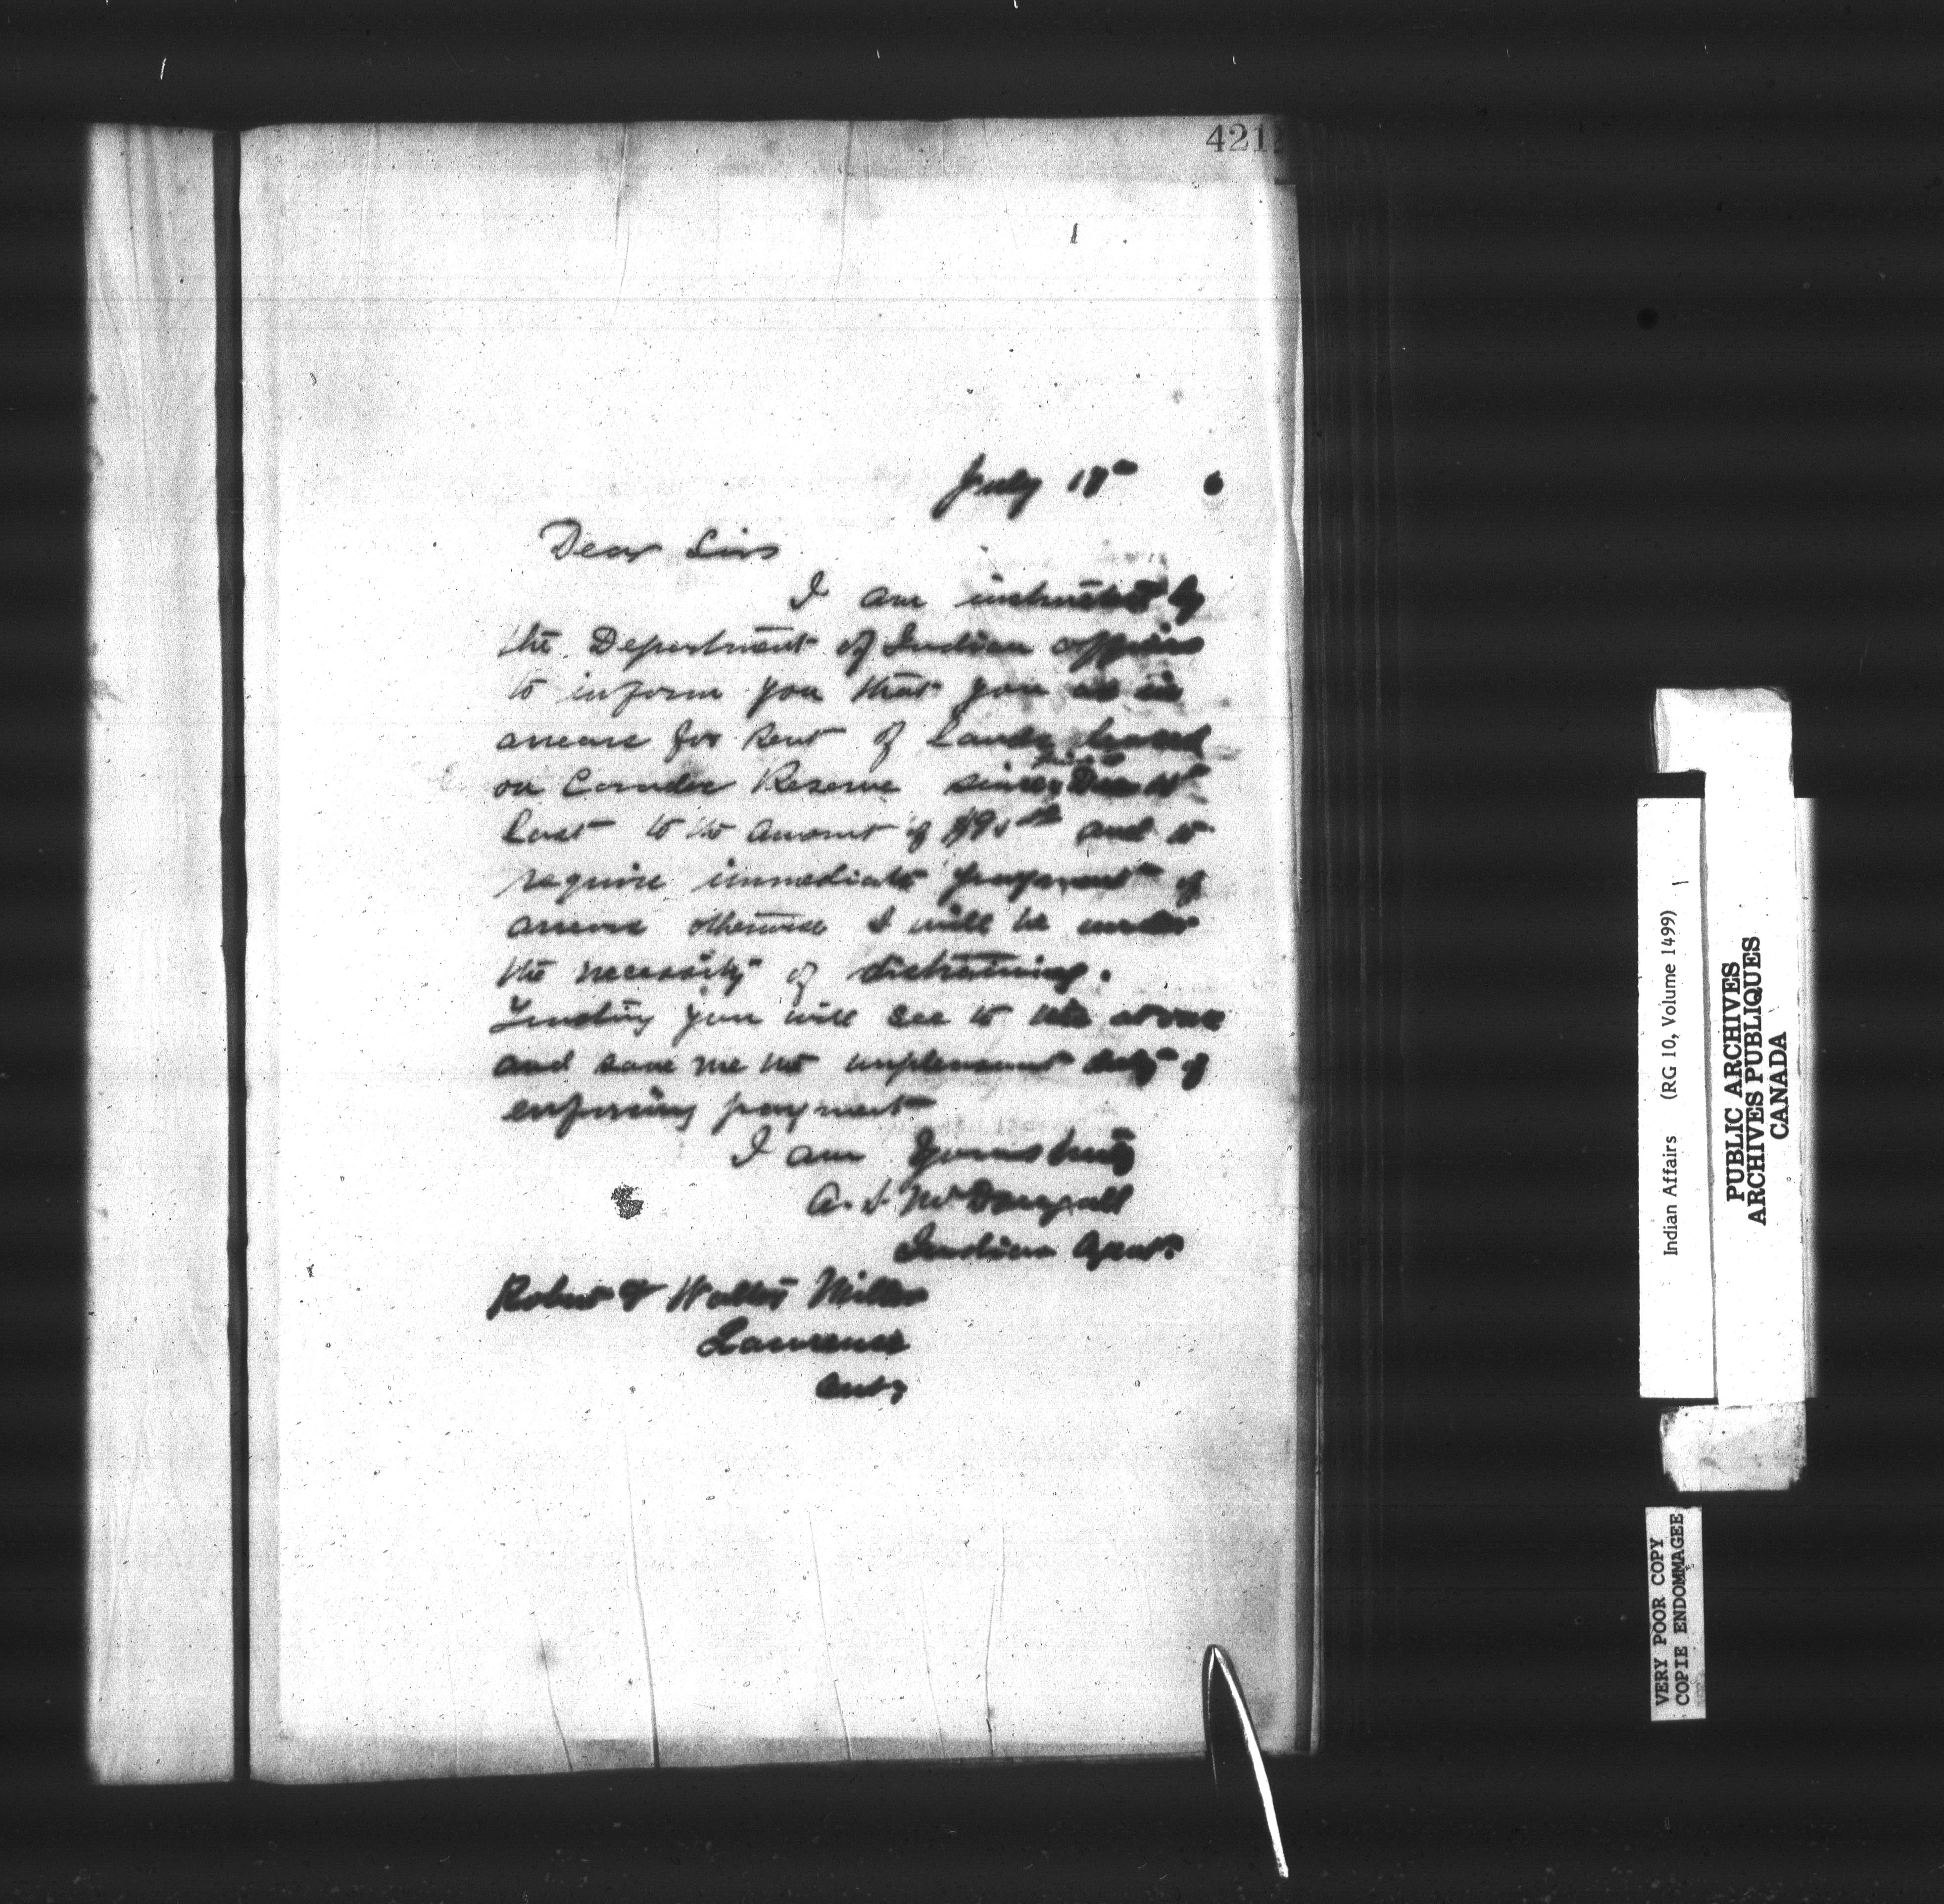 421
July 17th 6
Dear Sirs
I am instructed by
the Department of Indian affairs
to inform you that you are in
arears for Rent of Lands leased
on Carador Reserve since Dec
Last to the amount of and to
require immediate payment of
arears otherwise I will be under
the necessity of distraining.
Trusting you will see to this at once
and save me the unpleasant duty of
enforcing payment
I am Yours truly
A. S McDougall
Indian Agent
Robert & Walter Miller
Lawrence
Ont
Indian Affairs (RG 10, Volume 1499)
PUBLIC ARCHIVES
ARCHIVES PUBLIQUES
CANADA
VERY POOR COPY
COPIE ENDOMMAGEE